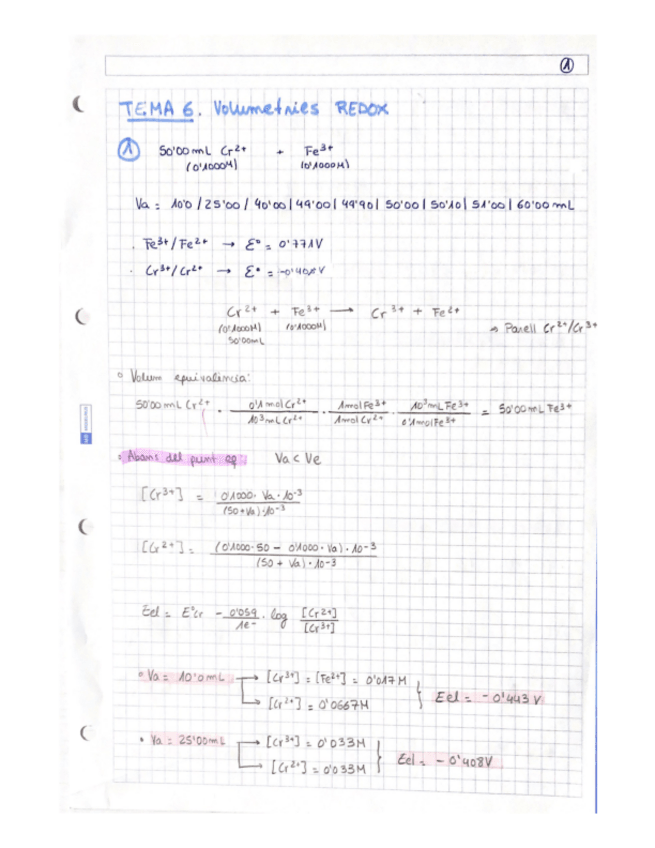 1
TEMA 6. Volumetries REDOX
1 50'00 mL Cr2+ + Fe3+
(0'1000M) (0'1000M)
Va = 10'0 / 25'00 / 40'00 / 49'00 / 49'90 / 50'00 / 50'10 / 51'00 / 60'00 mL
· Fe3+/Fe2+ → E° = 0'771V
· Cr3+/Cr2+ → E° = -0'408V
Cr2+ + Fe3+ → Cr3+ + Fe2+
(0'1000M) (0'1000M)
50'00mL
→ Parell Cr2+/Cr3+
Volum equivalència:
50'00 mL Cr2+ · 0'1 mol Cr2+ / 10³ mL Cr2+ · 1 mol Fe3+ / 1 mol Cr2+ · 10³ mL Fe3+ / 0'1 mol Fe3+ = 50'00 mL Fe3+
Abans del punt eq Va < Ve
[Cr3+] = 0'1000 · Va · 10-3 / (50 + Va) · 10-3
[Cr2+] = (0'1000·50 - 0'1000·Va) · 10-3 / (50 + Va) · 10-3
Eel = E°Cr - 0'059 / 1e- · log [Cr2+] / [Cr3+]
Va = 10'0 mL → [Cr3+] = [Fe2+] = 0'017 M
→ [Cr2+] = 0'0667M
Eel = -0'443 V
Va = 25'00mL → [Cr3+] = 0'033M
→ [Cr2+] = 0'033M
Eel = -0'408V